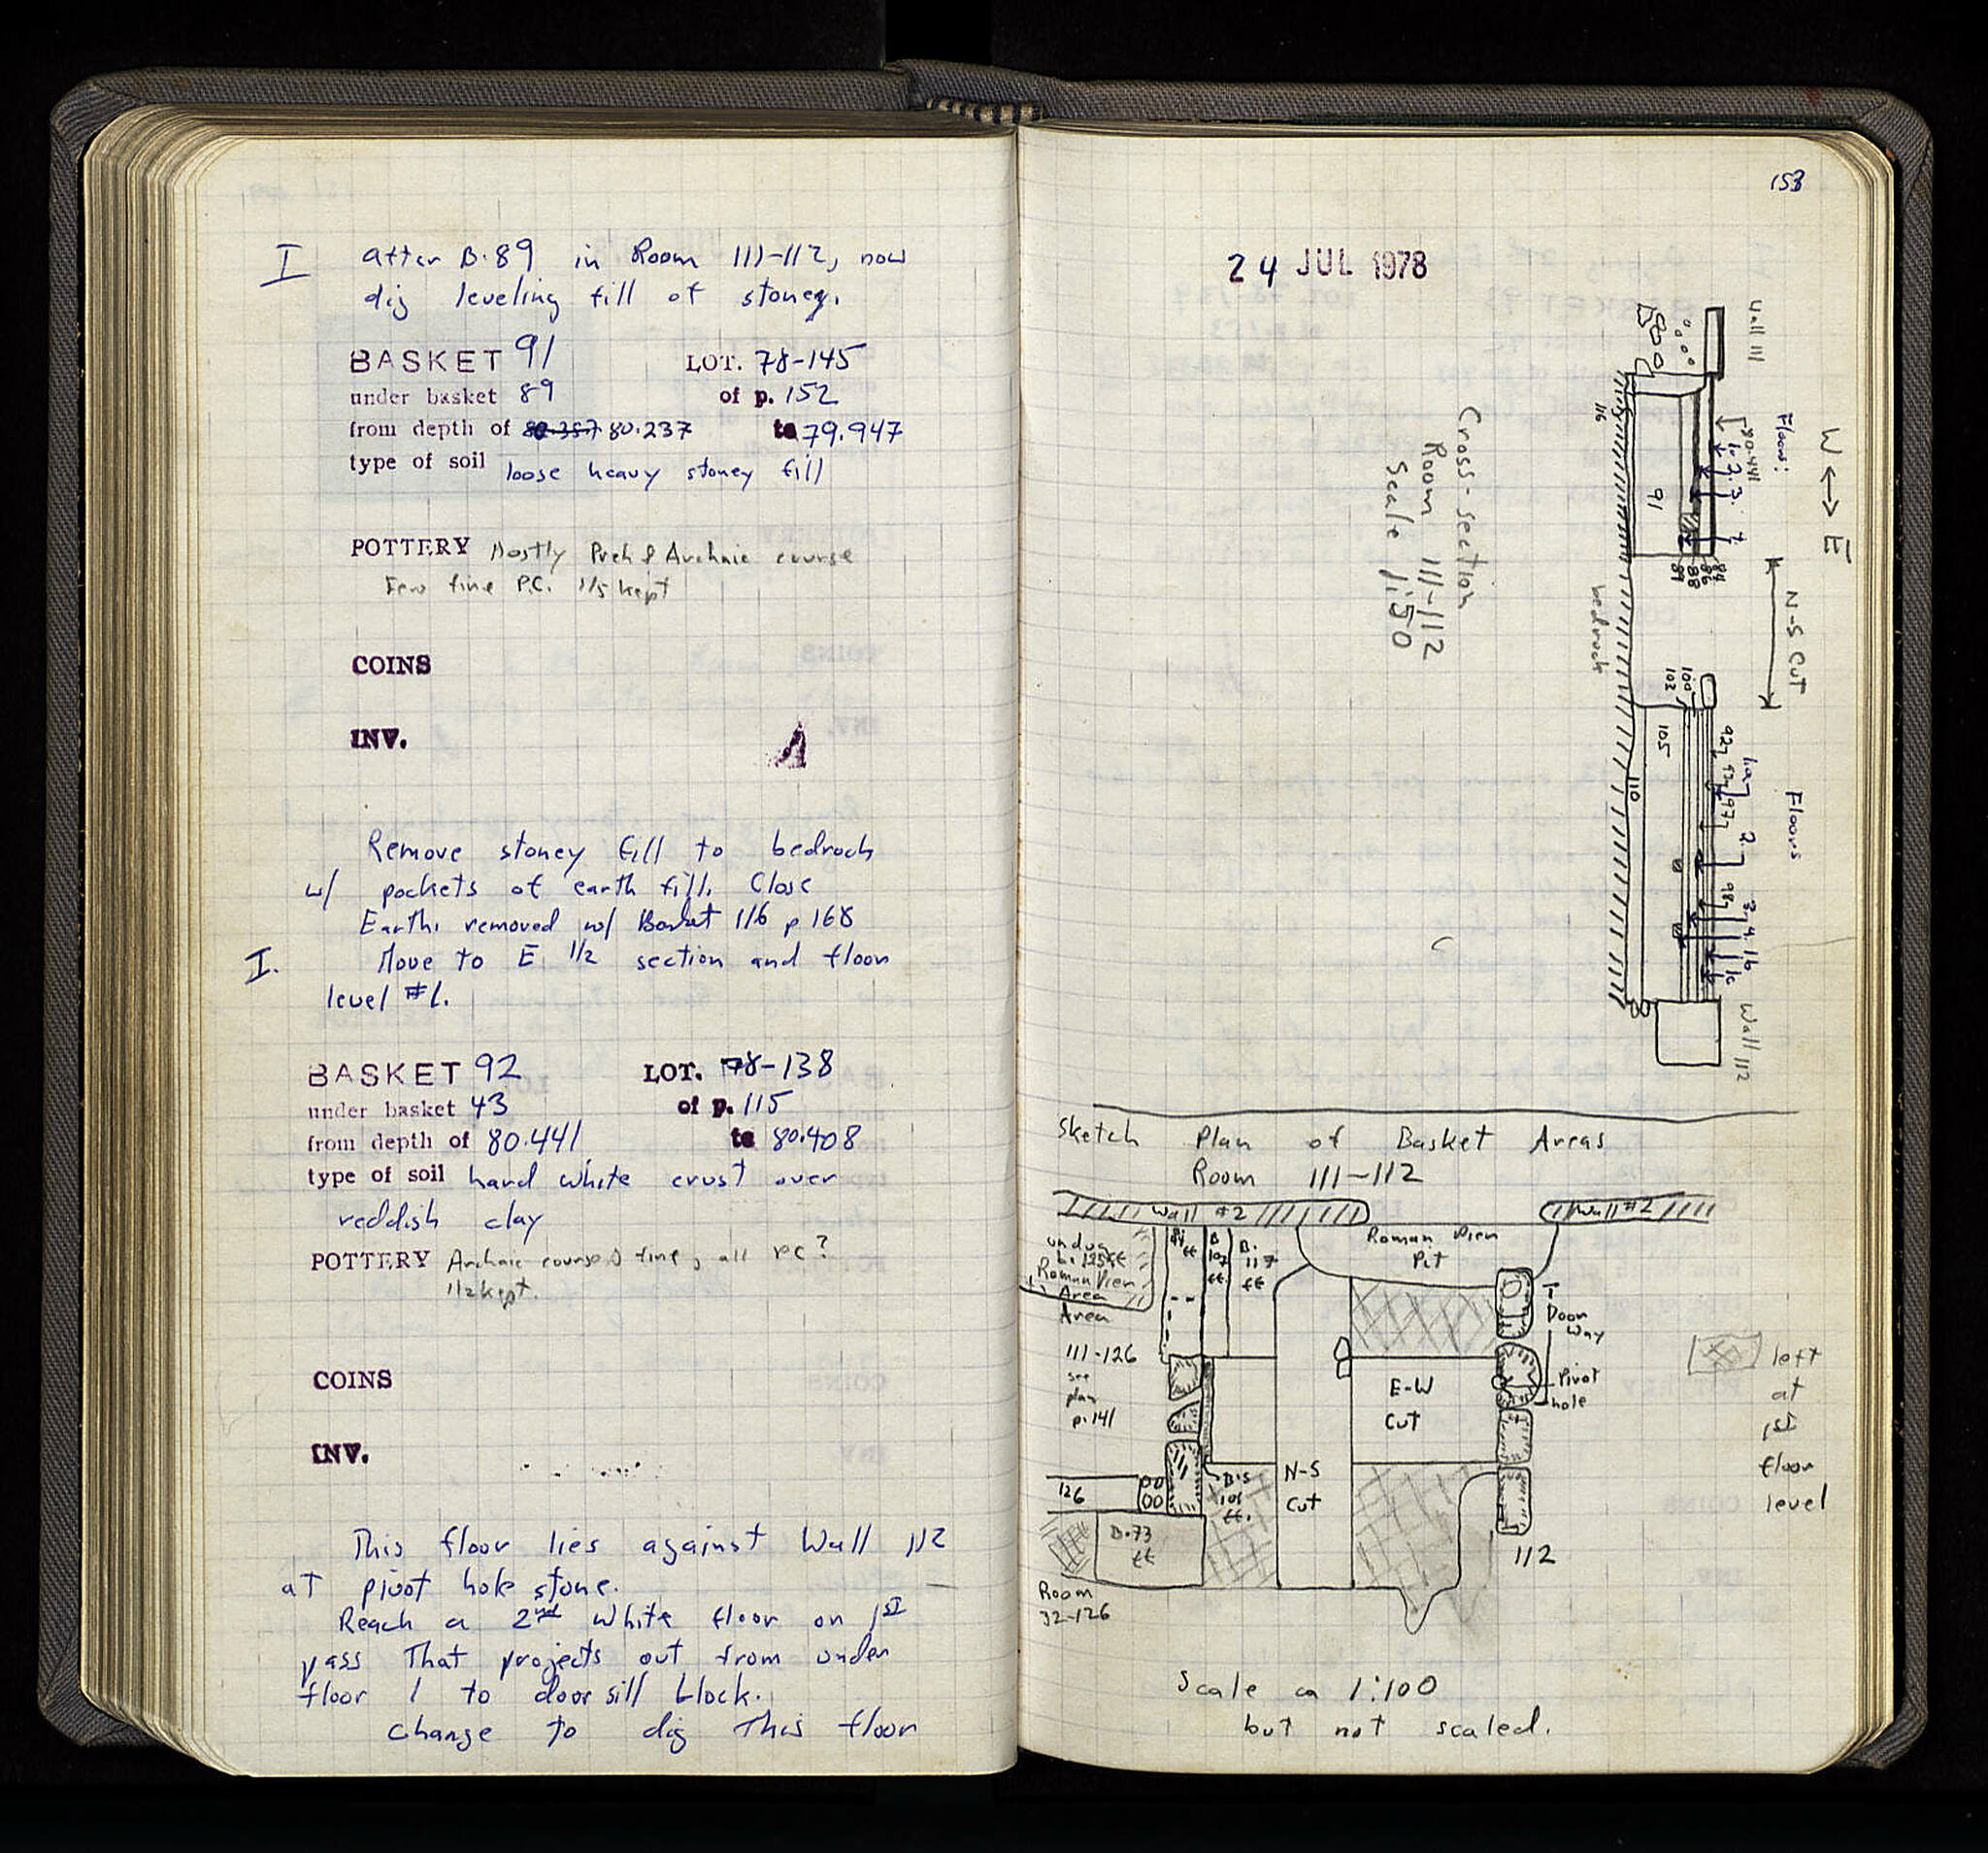 I after B.89 in Room 111-112, now
dig leveling fill of stoney.
BASKET 91 LOT. 78-145
under basket 89 of p. 152
from depth of 80.387 80.237 to 79.947
type of soil loose heavy stoney fill
POTTERY Mostly Preh & Archaic course
Few fine P.C. 1/5 kept
COINS
INV.
Remove stoney fill to bedrock
w/ pockets of earth fill. Close
Earth removed w/ Basket 116 p 168
I. Move to E 1/2 section and floor
level #1.
BASKET 92 LOT. 78-138
under basket 43 of p. 115
from depth of 80.441 to 80.408
type of soil hard white crust over
reddish clay
POTTERY Archaic course & fine, all PC?
1/2 kept.
COINS
INV.
This floor lies against Wall 112
at pivot hole stone.
Reach a 2nd white floor on 1st
pass that projects out from under
floor 1 to door sill block.
change to dig this floor
153
24 JUL 1978
Cross-section
Room 111-112
Scale 1:50
W ↔ E
Wall 111
Floors:
80.441
1. 2. 3.
116
91
84
86
88
89
N-S Cut
bedrock
100
102
105
110
Floors
92
97
2
98
3
4
1b
1c
Wall 112
Sketch Plan of Basket Areas
Room 111-112
Wall #2
Wall #2
Roman View
Pit
Roman View
Area
Area
111-126
see
plan
p. 141
B
107
ff.
B.
117
ff
Door
Way
Pivot
hole
E-W
Cut
N-S
Cut
126
B.73
ff
B's
101
ff.
112
Room
32-126
left
at
1st
floor
level
Scale ca 1:100
but not scaled.